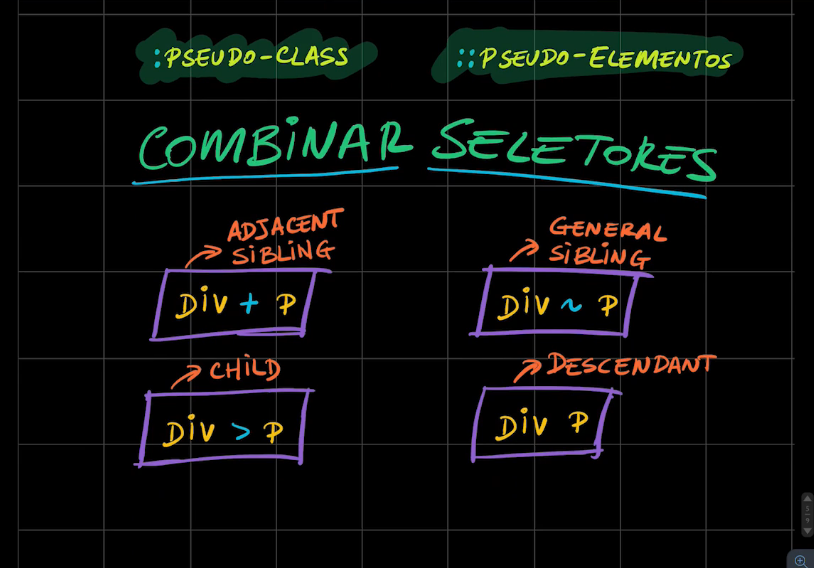 :PSEUDO-CLASS
::PSEUDO-ELEMENTOS
COMBINAR SELETORES
ADJACENT
SIBLING
GENERAL
SIBLING
Div + P
Div ~ P
CHILD
DESCENDANT
Div > P
Div P
5
9